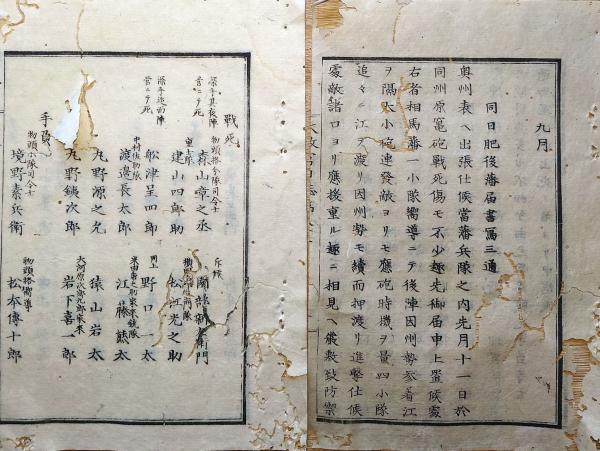 九月
同日肥後藩届書寫三通
奥州表ヘ出張仕候當藩兵隊之内先月十一日於
同州原竈砲戰死傷モ不少趣先御届申上置候處
右者相馬藩一小隊嚮導ニテ後陣因州勢參着江
ヲ隔大小砲連發敵ヨリモ應砲時機ヲ量四小隊
追々ニ江ヲ渡リ因州勢モ續而押渡リ進撃仕候
處敵諸口ヨリ應援重ル趣ニ相見ヘ嚴敷致防禦
戰死
物頭搭令隊司令士
森山章之丞
深手其夜陣營ニテ死
建山四郎助
舩津呈四郎
深手追而陣營ニテ死
中村佐助隊
渡邉長太郎
九野源之允
九野鐵次郎
手負
物頭小隊司令士
境野素兵衛
斥候
衛門
松江光之助
同上
野口一太
米田與七助家来銃隊
江藤熊太
猿山岩太
大河原次郎九郎家来
岩下喜一郎
物頭搭嚮導
松本傳十郎